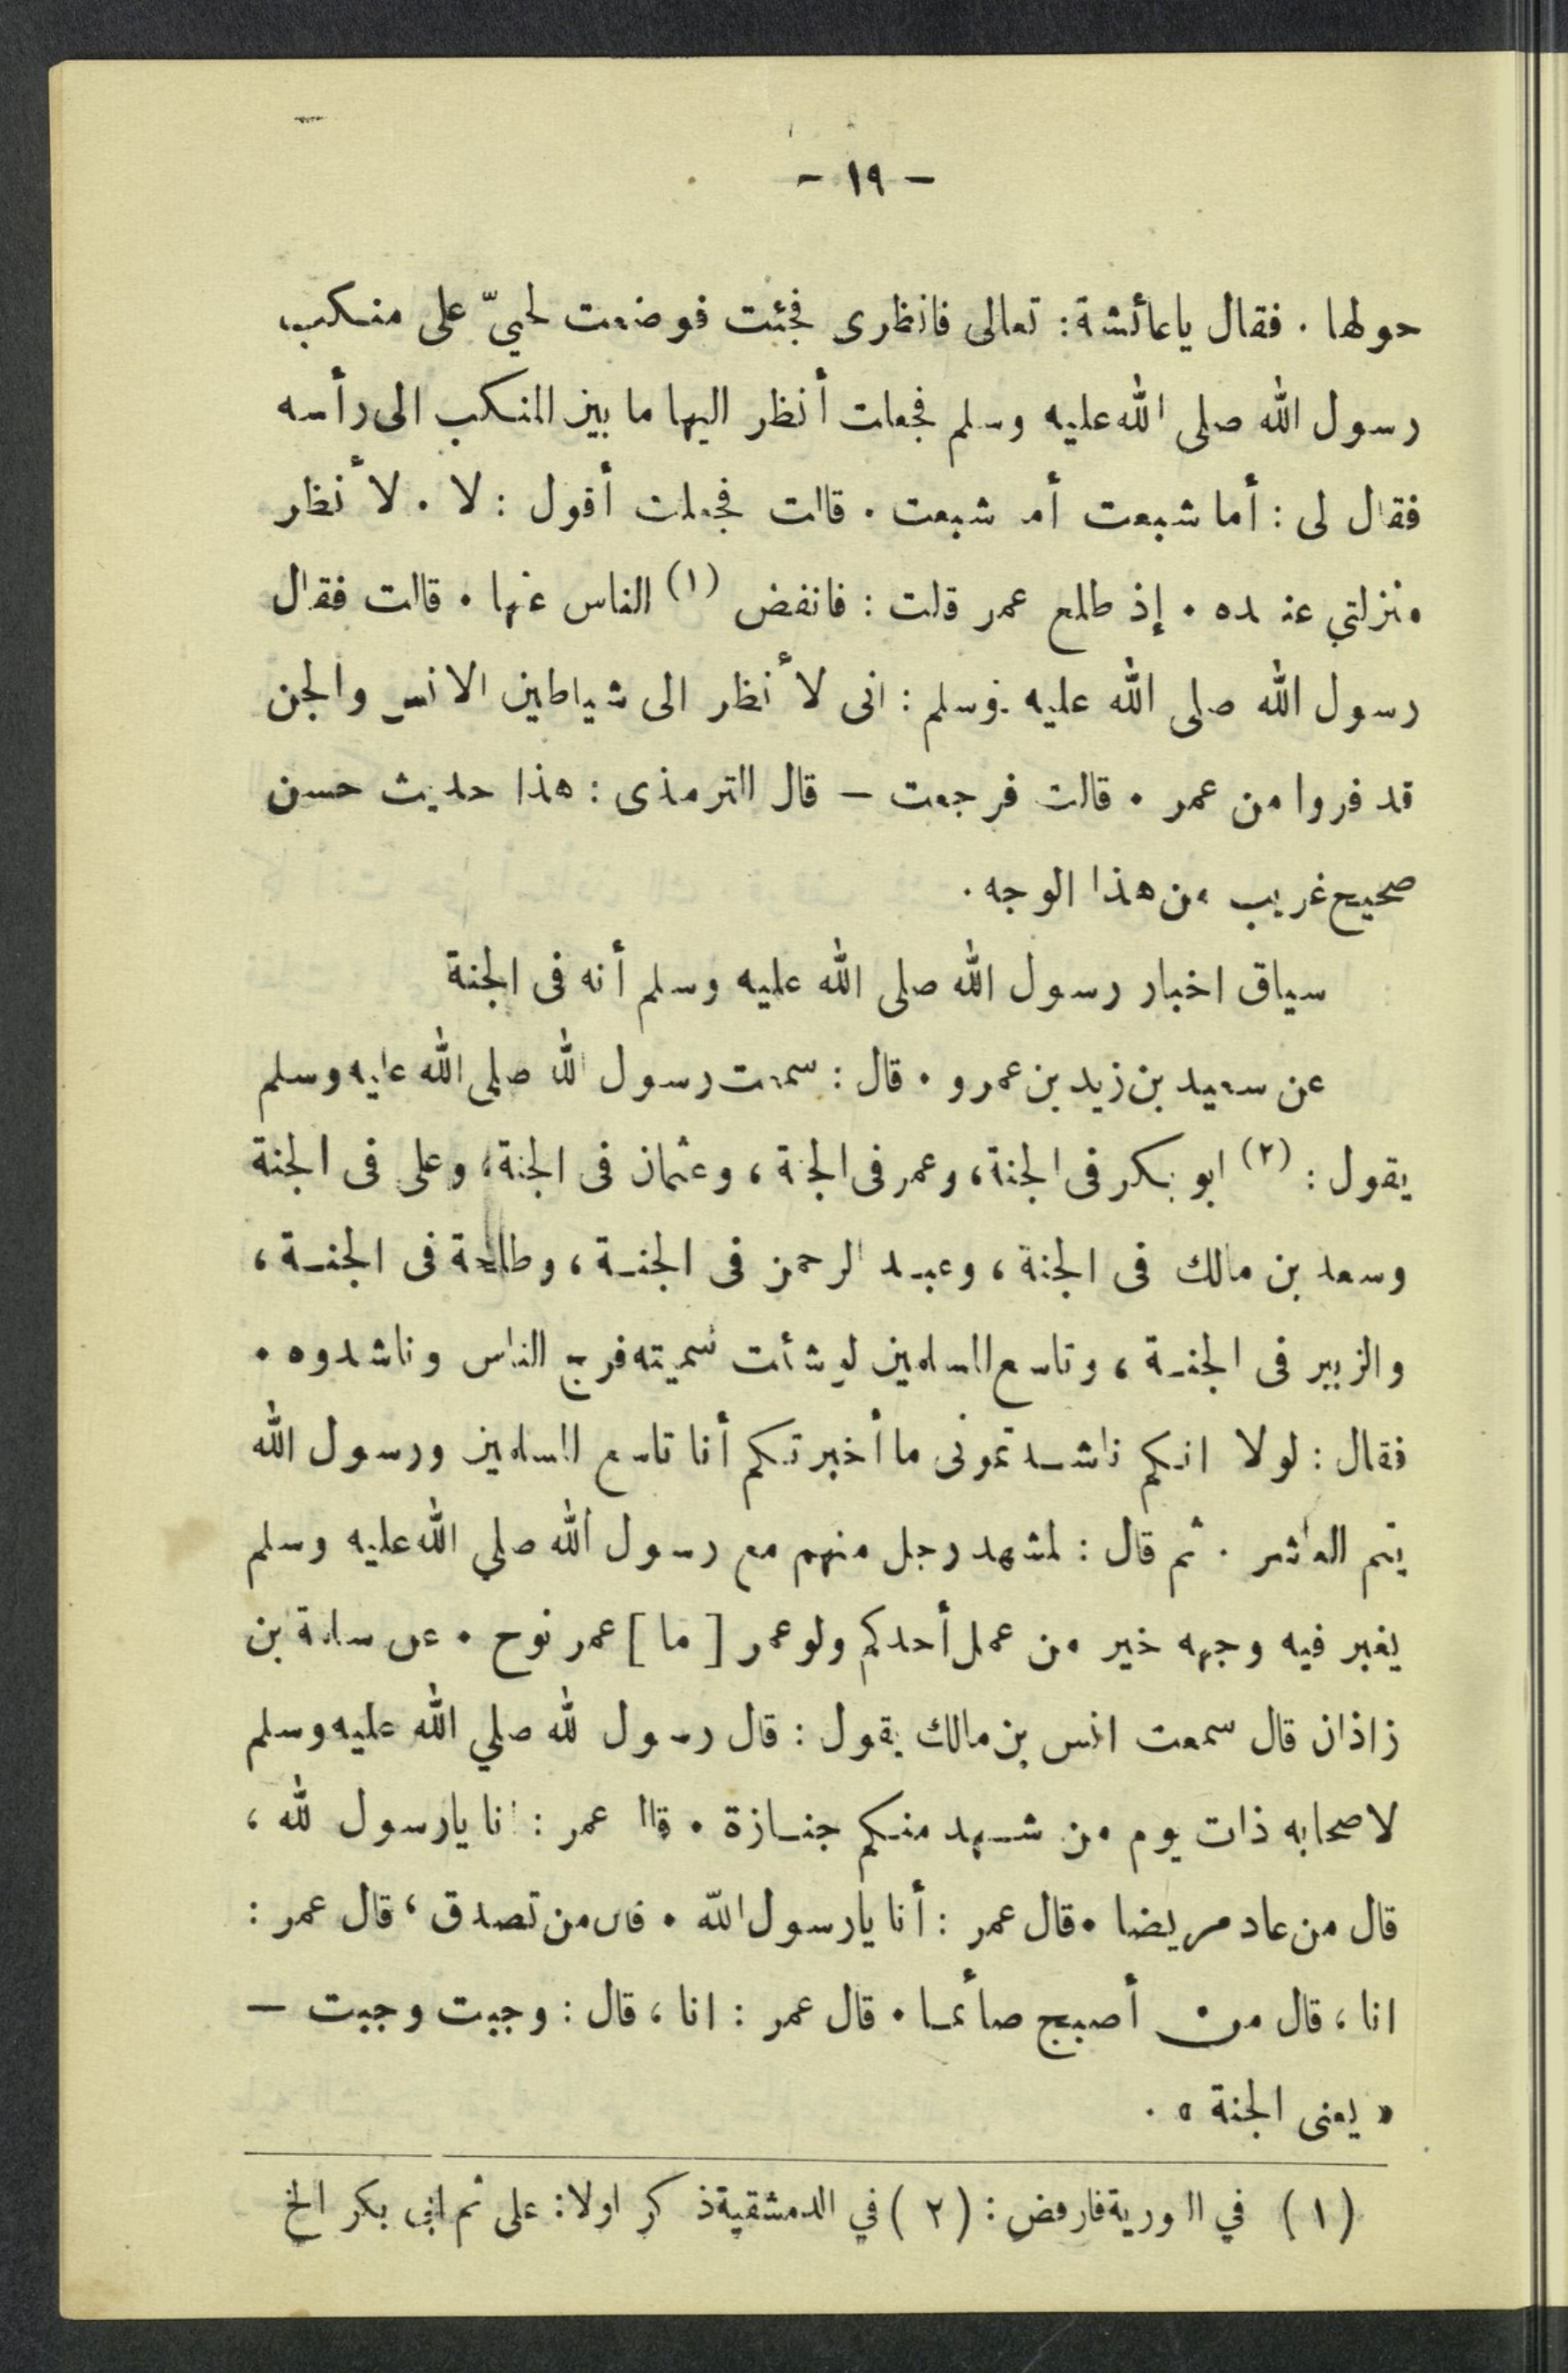 - ١٩ -
حولها . فقال ياعائشة: تعالى فانظرى فجئت فوضعت لحييّ على منكب
رسول الله صلى الله عليه وسلم فجعلت أنظر اليها ما بين المنكب الى رأسه
فقال لى : أما شبعت أما شبعت . قالت فجعلت أقول : لا . لأنظر
منزلتي عنده . إذ طلع عمر قلت : فانفض (١) الناس عنها . قالت فقال
رسول الله صلى الله عليه وسلم : انى لأنظر الى شياطين الانس والجن
قد فروا من عمر . قالت فرجعت — قال الترمذى : هذا حديث حسن
صحيح غريب من هذا الوجه .
سياق اخبار رسول الله صلى الله عليه وسلم أنه فى الجنة
عن سعيد بن زيد بن عمرو . قال : سمعت رسول الله صلى الله عليه وسلم
يقول : (٢) ابو بكر فى الجنة، وعمر فى الجنة ، وعثمان فى الجنة، وعلى فى الجنة
وسعد بن مالك فى الجنة ، وعبد الرحمن فى الجنة ، وطلحة فى الجنة ،
والزبير فى الجنة ، وتاسع المسلمين لو شئت سميته فرج الناس وناشدوه .
فقال : لولا انكم ناشدتمونى ما أخبرتكم أنا تاسع المسلمين ورسول الله
يتم العاشر . ثم قال : لمشهد رجل منهم مع رسول الله صلي الله عليه وسلم
يغبر فيه وجهه خير من عمل أحدكم ولو عمر [ ما ] عمر نوح . عن سلمة بن
زاذان قال سمعت انس بن مالك يقول : قال رسول لله صلي الله عليه وسلم
لاصحابه ذات يوم من شهد منكم جنازة . قال عمر : انا يارسول لله ،
قال من عاد مريضا . قال عمر : أنا يارسول الله . قال من تصدق ، قال عمر :
انا ، قال من أصبح صأئما . قال عمر : انا ، قال : وجبت وجبت —
« يعنى الجنة » .
(١) في ا ورية فارفض : (٢) في الدمشقية ذكر اولا : على ثم ابى بكر الخ